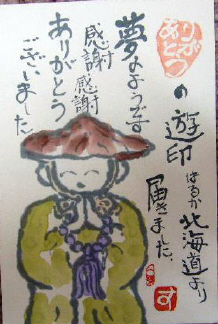 ありがとう
の遊印
はるか北海道より
届きました、
夢のようです
感謝感謝
ありがとう
ございました
す